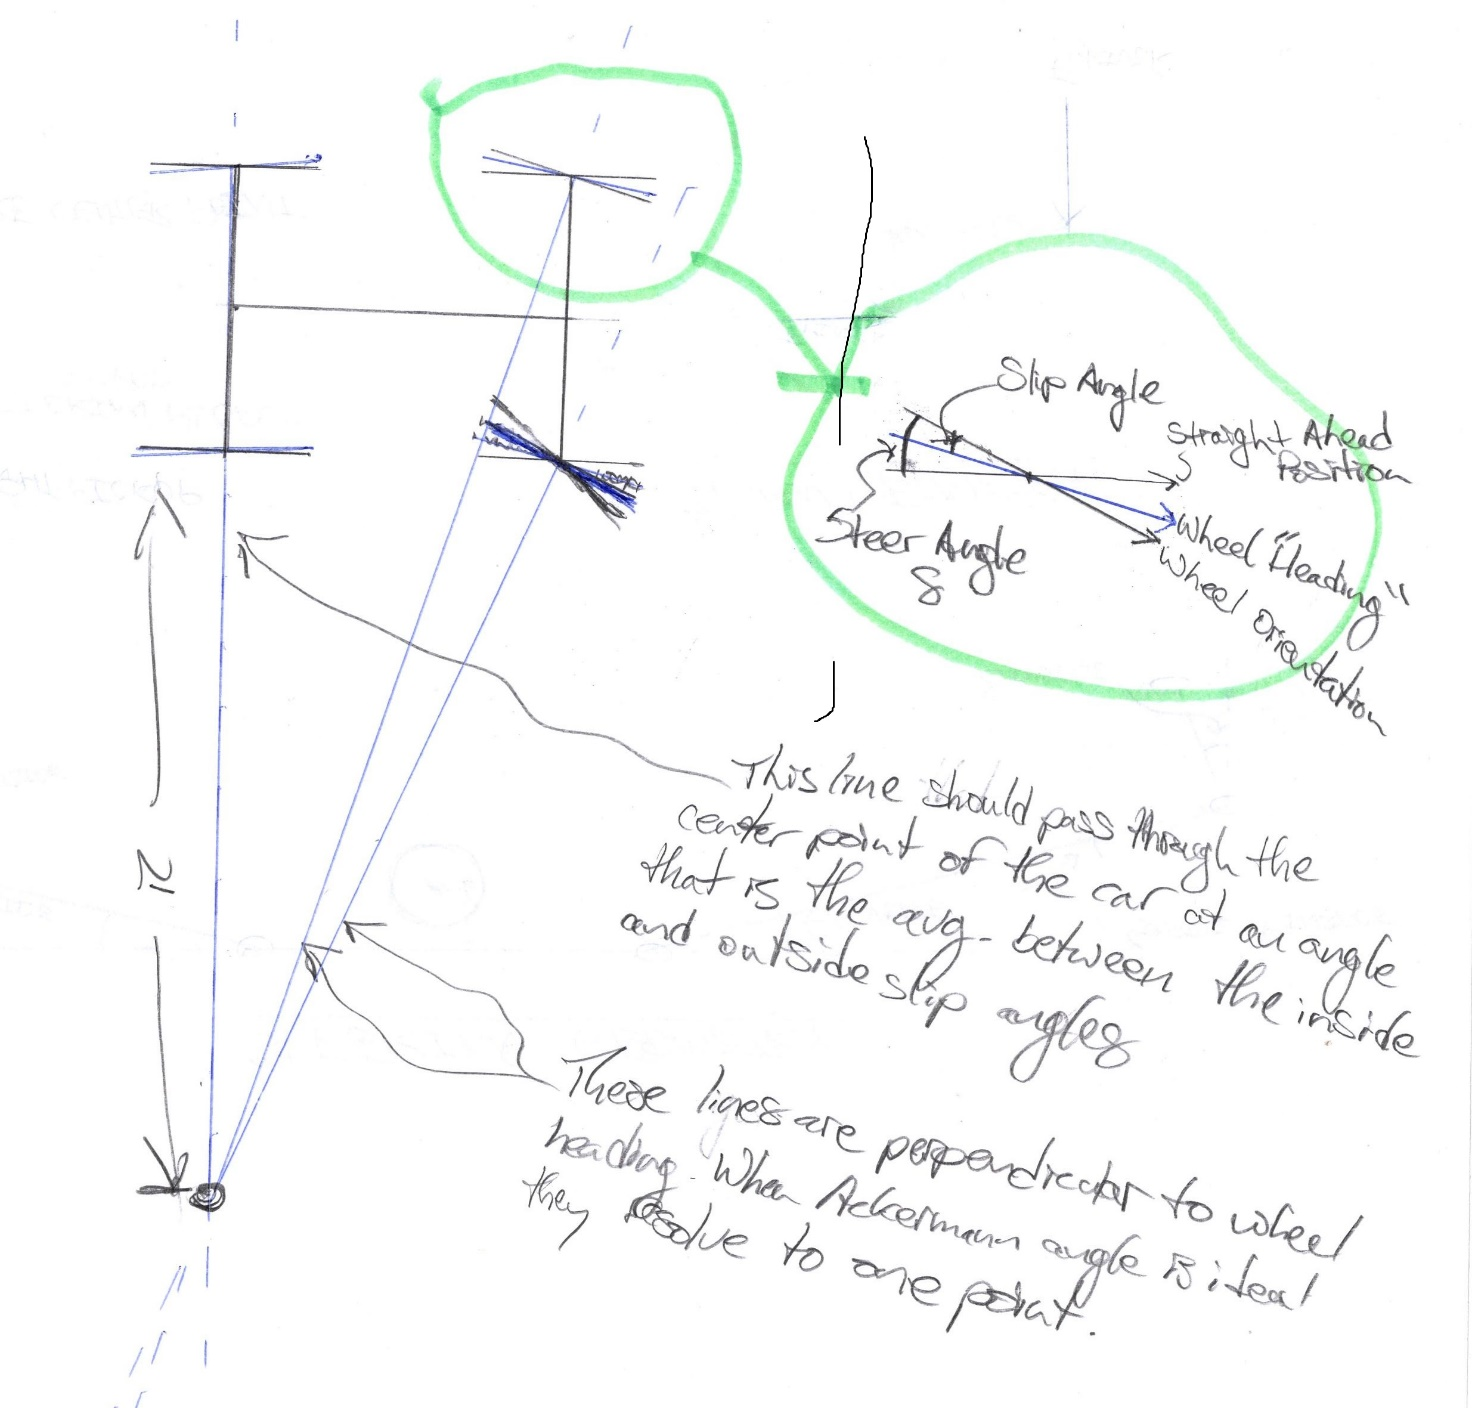 Slip Angle
Straight Ahead
Position
Wheel "Heading"
Wheel orientation
Steer Angle
δ
This line should pass through the
center point of the car at an angle
that is the avg. between the inside
and outside slip angles
These lines are perpendicular to wheel
heading. When Ackermann angle is ideal
they resolve to one point.